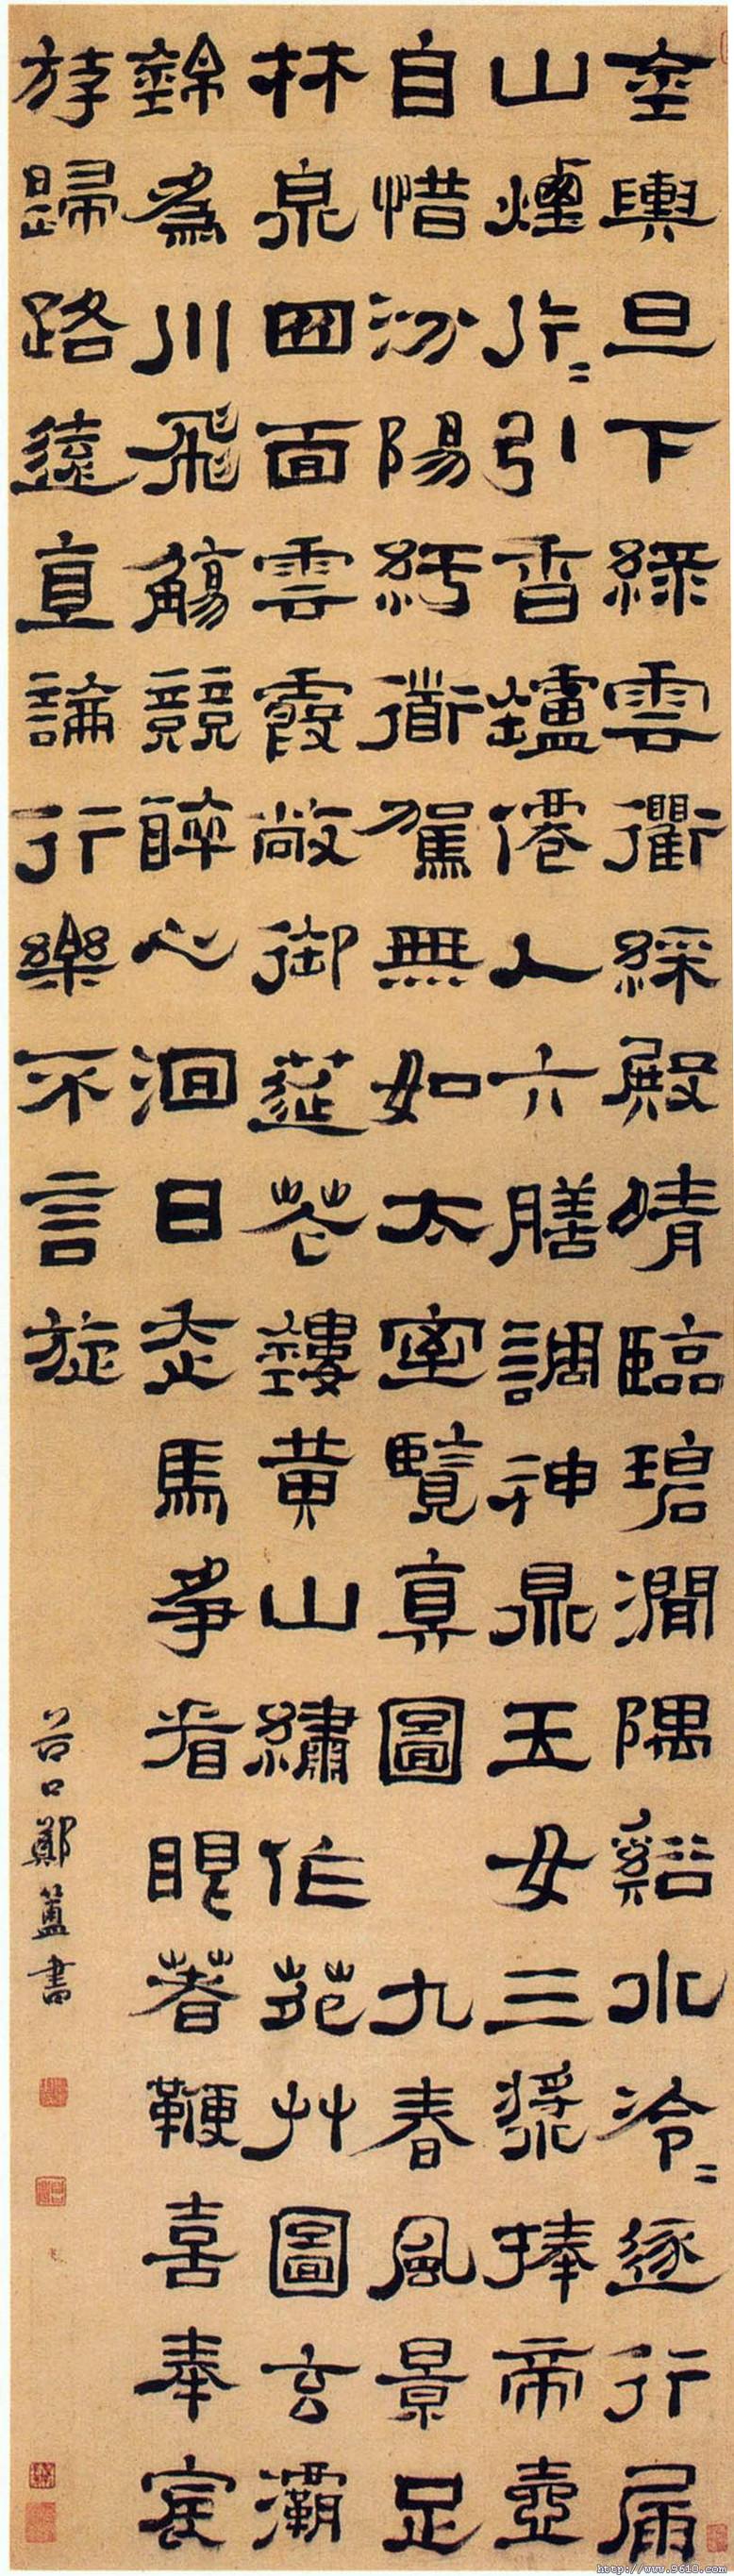 金輿旦下綠雲衢綵殿晴臨碧澗隅谿水泠〻逐行屚
山煙片〻引香鑪僊人六膳調神鼎玉女三漿捧帝壺
自惜汾陽紆衜駕無如太室覽真圖 九春風景足
林泉四面雲霞敞御莚花鏤黃山繡作苑艸圖玄灞
錦為川飛觴競醉心洄日走馬爭看眼著鞭喜奉宸
斿歸路遠直論行樂不言旋
谷口鄭簠書
http://www.9610.com